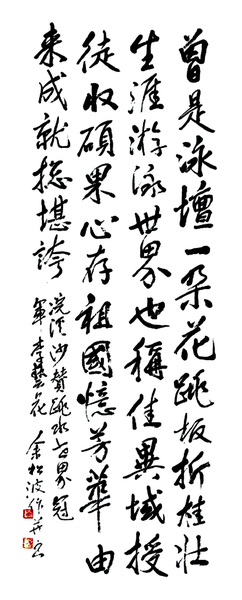 曾是泳壇一朵花跳板折桂壯
生涯游泳世界也稱佳異域授
徒收碩果心存祖國憶芳華由
来成就總堪誇
浣溪沙贊跳水世界冠
軍李藝花 余松波作并書